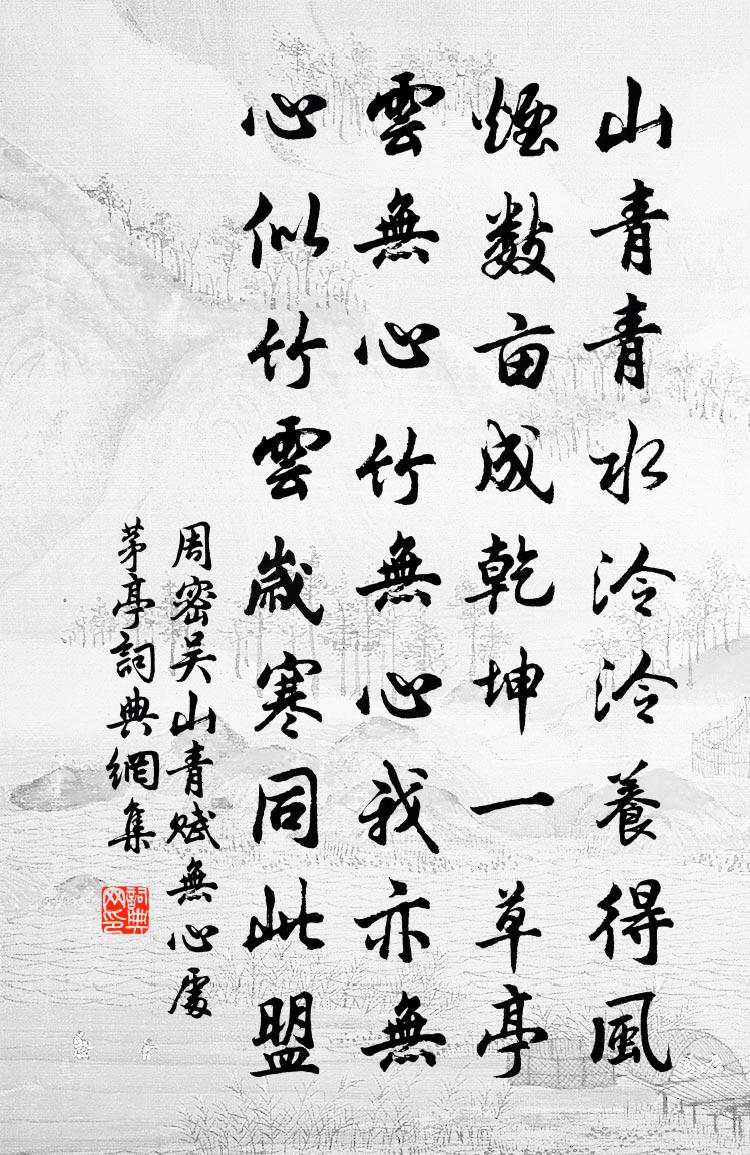 山青青水泠泠養得風
煙数亩成乾坤一草亭
雲無心竹無心我亦無
心似竹雲歲寒同此盟
周密吴山青赋無心處
茅亭詞典網集
詞典网印